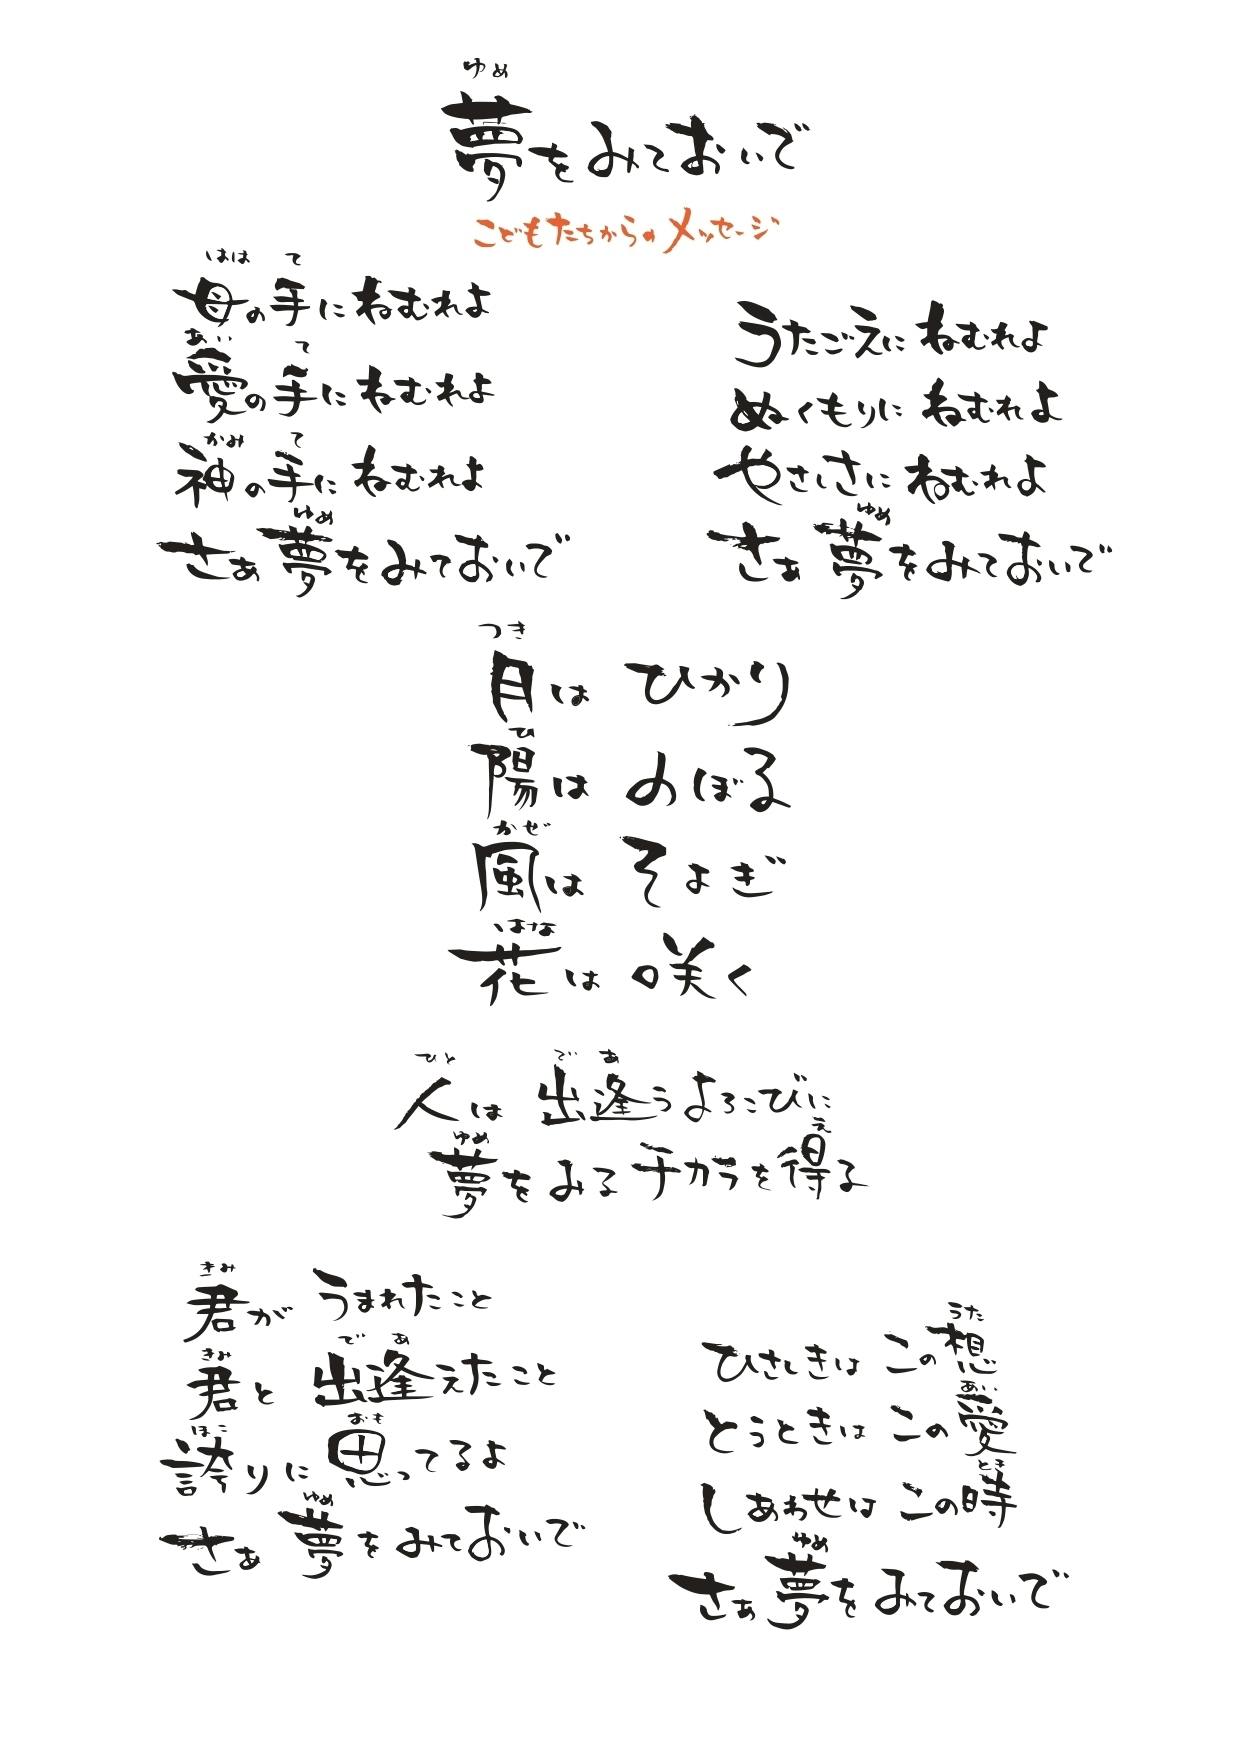 ゆめ
夢をみておいで
こどもたちからのメッセージ
はは て
母の手にねむれよ
あい て
愛の手にねむれよ
かみ て
神の手にねむれよ
ゆめ
さぁ 夢をみておいで
うたごえに ねむれよ
ぬくもりに ねむれよ
やさしさに ねむれよ
ゆめ
さぁ 夢をみておいで
つき
月は ひかり
ひ
陽は のぼる
かぜ
風は そよぎ
はな
花は 咲く
ひと で あ
人は 出逢うよろこびに
ゆめ え
夢をみるチカラを得る
きみ
君が うまれたこと
きみ で あ
君と 出逢えたこと
ほこ おも
誇りに 思ってるよ
ゆめ
さぁ 夢を みておいで
うた
ひさしきは この想
あい
とうときは この愛
とき
しあわせは この時
ゆめ
さぁ 夢を みておいで